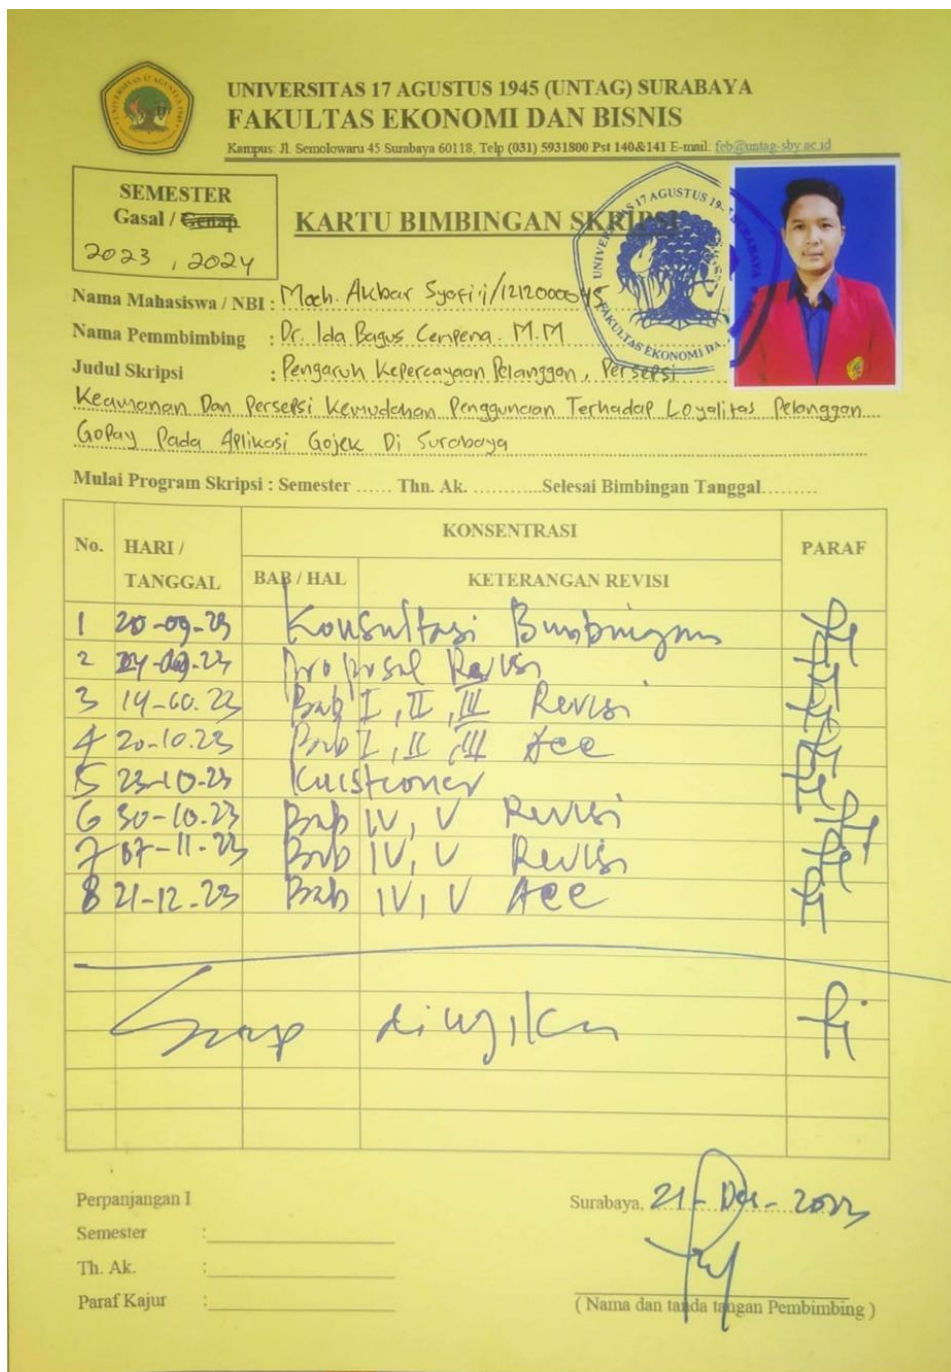 UNIVERSITAS 17 AGUSTUS 1945 (UNTAG) SURABAYA
FAKULTAS EKONOMI DAN BISNIS
Kampus: Jl. Semolowaru 45 Surabaya 60118, Telp (031) 5931800 Pst 140&141 E-mail: feb@untag-sby.ac.id
SEMESTER
Gasal / Genap
2023 , 2024
KARTU BIMBINGAN SKRIPSI
Nama Mahasiswa / NBI : Moch. Akbar Syafi'i/1212000045
Nama Pemmbimbing : Dr. Ida Bagus Cempena. M.M
Judul Skripsi : Pengaruh Kepercayaan Pelanggan, Persepsi
Keamanan Dan Persepsi Kemudahan Penggunaan Terhadap Loyalitas Pelanggan
GoPay Pada Aplikasi Gojek Di Surabaya
Mulai Program Skripsi : Semester ...... Thn. Ak. ...........Selesai Bimbingan Tanggal.........
No. HARI / TANGGAL KONSENTRASI PARAF
BAB / HAL KETERANGAN REVISI
1 20-09-23 Konsultasi Bimbingan
2 Proposal Revisi
3 14-10.23 Bab I, II, III Revisi
4 20-10.23 Bab I, II, III Acc
5 23-10-23 Kuistioner
6 30-10.23 Bab IV, V Revisi
7 07-11-23 Bab IV, V Revisi
8 21-12.23 Bab IV, V Acc
Siap diujikan
Perpanjangan I
Semester :
Th. Ak. :
Paraf Kajur :
Surabaya, 21-Des-2023
( Nama dan tanda tangan Pembimbing )